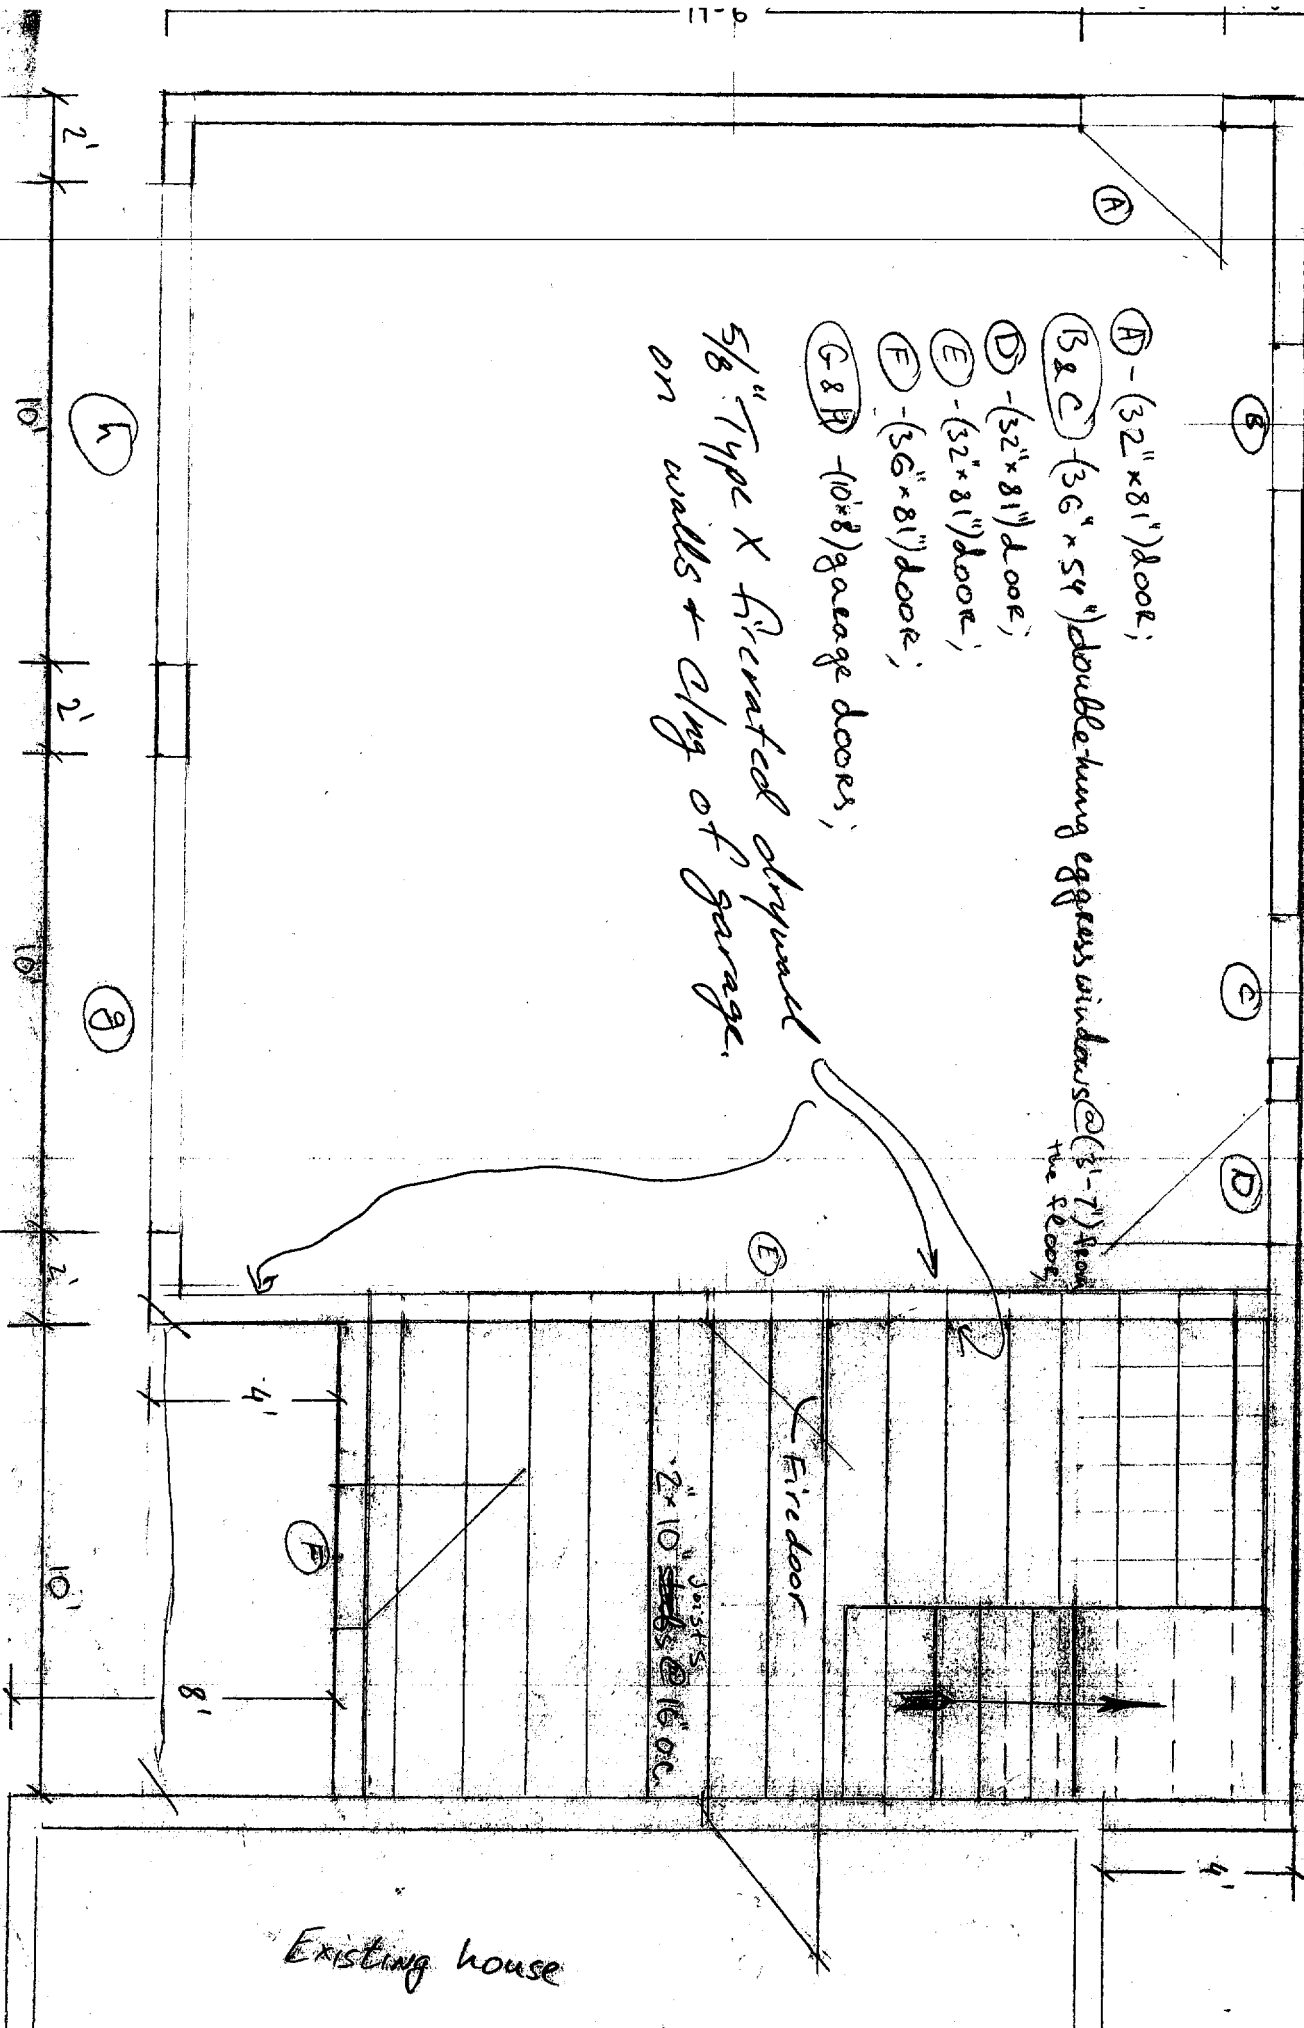 17-6
A
B
C
D
E
F
g
h
A -(32"×81")dooR;
B & C -(36"×54")double-hung eggress windows@(3'-7") from
the flooR,
D -(32"×81")dooR;
E -(32"×81")dooR;
F -(36"×81")dooR;
G & H -(10'×8')gaRage dooRs;
5/8" Type X firerated drywall
on walls + clng of garage.
Fire door
Joists
2"×10" @ 16" O.C.
Existing house
2'
10'
2'
10'
2'
10'
4'
8'
4'